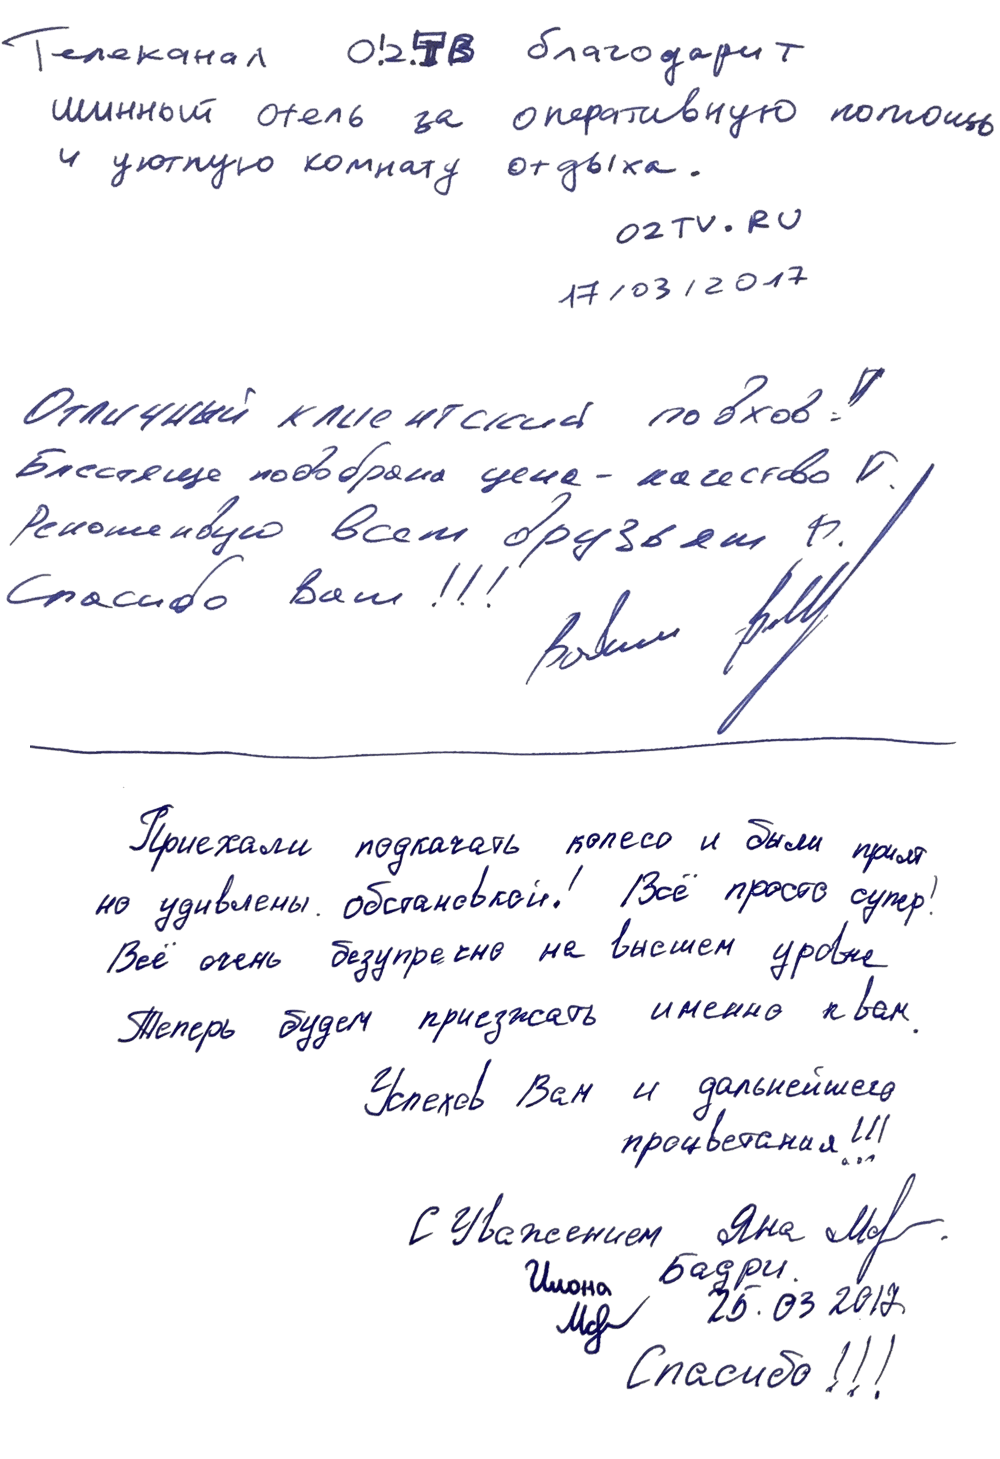 Телеканал О2ТВ благодарит
шинный отель за оперативную помощь
и уютную комнату отдыха.
O2TV.RU
17/03/2017
Отличный клиентский подход!
Блестяще подобрана цена - качество!.
Рекомендую всем друзьям!.
Спасибо Вам!!!
Вадим
Приехали подкачать колесо и были прият
но удивлены обстановкой! Всё просто супер!
Всё очень безупречно на высшем уровне
Теперь будем приезжать именно к вам.
Успехов Вам и дальнейшего
процветания!!!
С Уважением Яна
Бадри.
Илона
25.03 2017.
Спасибо!!!